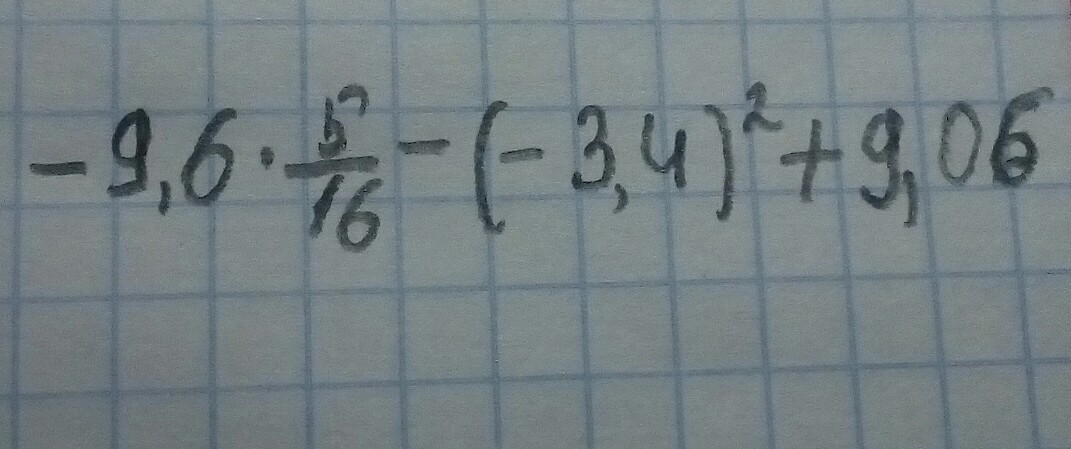 -9,6 · 5/16 - (-3,4)² + 9,06